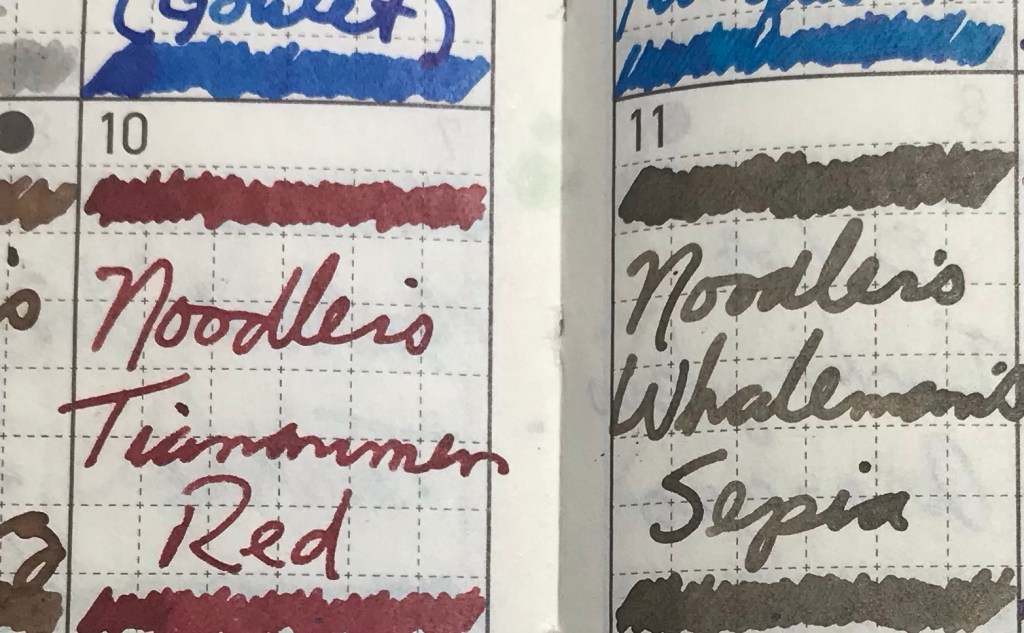 (Goulet)
10
Noodler's
Tiananmen
Red
11
Noodler's
Whaleman's
Sepia